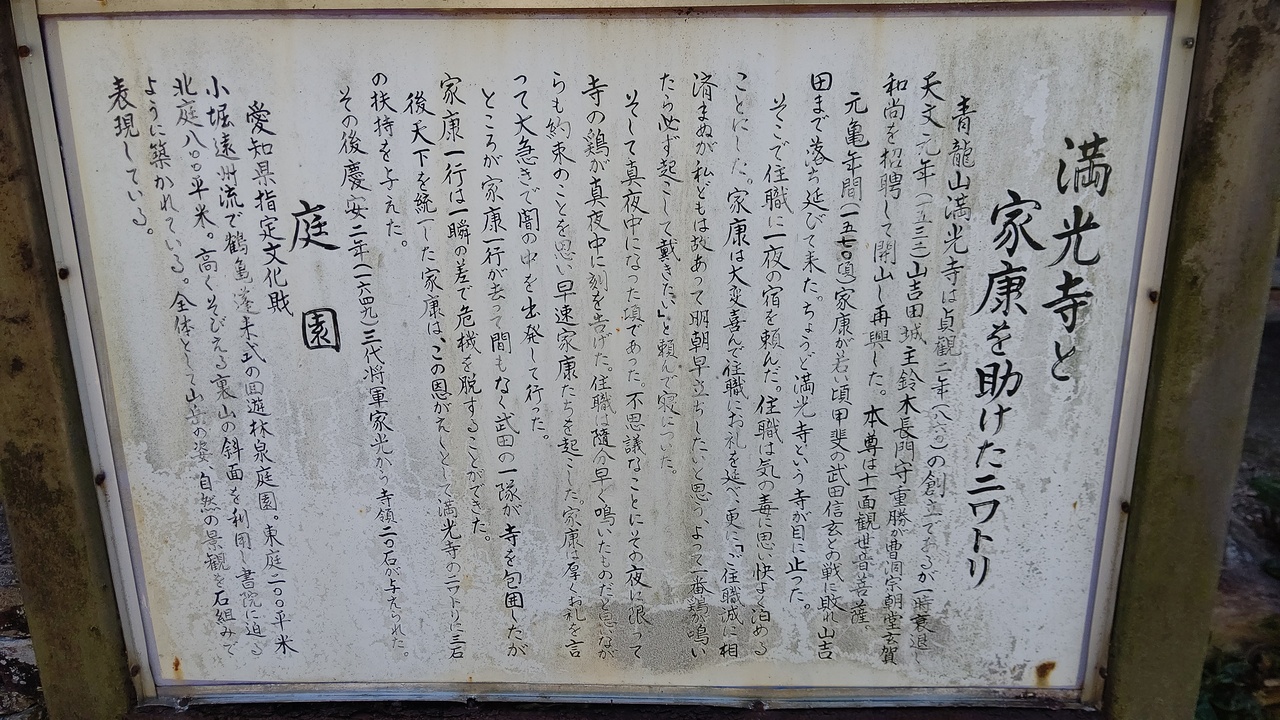 満光寺と
家康を助けたニワトリ
青龍山満光寺は貞観二年(八六〇)の創立であるが一時衰退し
天文元年(一五三二)山吉田城主鈴木長門守重勝が曹洞宗朝堂玄賀
和尚を招聘して開山し再興した。本尊は十一面観世音菩薩。
元亀年間(一五七〇頃)家康が若い頃甲斐の武田信玄との戦に敗れ山吉
田まで落ち延びて来た。ちょうど満光寺という寺が目に止った。
そこで住職に一夜の宿を頼んだ。住職は気の毒に思い快よく泊める
ことにした。家康は大変喜んで住職にお礼を延べ、更に「ご住職誠に相
済まぬが私どもは故あって明朝早立ちしたいと思う、よって一番鶏が鳴い
たら必ず起こして戴きたい」と頼んで寝についた。
そして真夜中になった頃であった。不思議なことにその夜に限って
寺の鶏が真夜中に刻を告げた。住職は随分早く鳴いたものだと思いなが
らも約束のことを思い早速家康たちを起こした。家康は厚くお礼を言
って大急ぎで闇の中を出発して行った。
ところが家康一行が去って間もなく武田の一隊が寺を包囲したが
家康一行は一瞬の差で危機を脱することができた。
後天下を統一した家康は、この恩がえしとして満光寺のニワトリに三石
の扶持を与えた。
その後慶安二年(一六四九)三代将軍家光から寺領二〇石が与えられた。
庭園
愛知県指定文化財
小堀遠州流で鶴亀蓬来式の回遊林泉庭園。東庭二〇〇平米
北庭八〇〇平米。高くそびえる裏山の斜面を利用し書院に迫る
ように築かれている。全体として山岳の姿、自然の景観を石組みで
表現している。